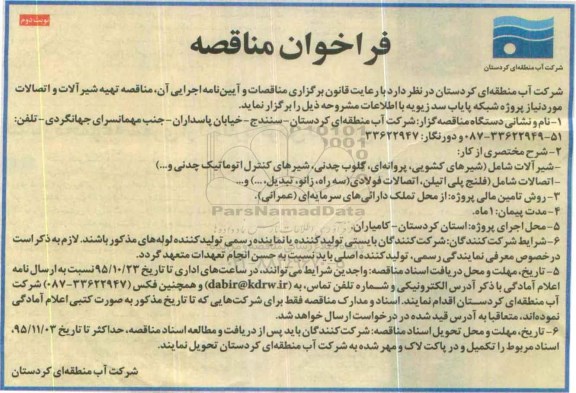 نوبت دوم
شرکت آب منطقه‌ای کردستان
فراخوان مناقصه
شرکت آب منطقه‌ای کردستان در نظر دارد با رعایت قانون برگزاری مناقصات و آیین‌نامه اجرایی آن، مناقصه تهیه شیرآلات و اتصالات
موردنیاز پروژه شبکه پایاب سد زیویه با اطلاعات مشروحه ذیل را برگزار نماید.
۱-نام و نشانی دستگاه مناقصه‌گزار: شرکت آب منطقه‌ای کردستان-سنندج-خیابان پاسداران-جنب مهمانسرای جهانگردی-تلفن:
۵۱-۳۳۶۲۲۹۴۹-۰۸۷ و دورنگار: ۳۳۶۲۲۹۴۷
۲-شرح مختصری از کار:
-شیرآلات شامل (شیرهای کشویی، پروانه‌ای، گلوب چدنی، شیرهای کنترل اتوماتیک چدنی و...)
-اتصالات شامل (فلنج پلی اتیلن، اتصالات فولادی(سه راه، زانو، تبدیل، ...) و...
۳-روش تامین مالی پروژه: از محل تملک دارائی‌های سرمایه‌ای (عمرانی).
۴-مدت پیمان: ۱ماه.
ParsNamadData
۵-محل اجرای پروژه: استان کردستان-کامیاران.
۶-شرایط شرکت‌کنندگان: شرکت‌کنندگان بایستی تولیدکننده یا نماینده رسمی تولیدکننده لوله‌های مذکور باشند. لازم به ذکر است
در خصوص معرفی نمایندگی رسمی، تولیدکننده اصلی باید نسبت به حسن انجام تعهدات متعهد گردد.
۵-تاریخ، مهلت و محل دریافت اسناد مناقصه: واجدین شرایط می‌توانند، در ساعت‌های اداری تا تاریخ ۹۵/۱۰/۲۳ نسبت به ارسال نامه
اعلام آمادگی با ذکر آدرس الکترونیکی و شماره تلفن تماس، به (dabir@kdrw.ir) و همچنین فکس (۳۳۶۲۲۹۴۷-۰۸۷) شرکت
آب منطقه‌ای کردستان اقدام نمایند. اسناد و مدارک مناقصه فقط برای شرکت‌هایی که تا تاریخ مذکور به صورت کتبی اعلام آمادگی
نموده‌اند، متعاقبا به آدرس قید شده در درخواست ارسال خواهد شد.
۶-تاریخ، مهلت و محل تحویل اسناد مناقصه: شرکت‌کنندگان باید پس از دریافت و مطالعه اسناد مناقصه، حداکثر تا تاریخ ۹۵/۱۱/۰۳،
اسناد مربوط را تکمیل و در پاکت لاک و مهر شده به شرکت آب منطقه‌ای کردستان تحویل نمایند.
شرکت آب منطقه‌ای کردستان